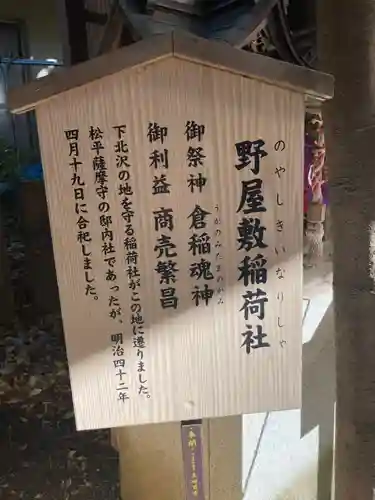 のやしきいなりしゃ
野屋敷稲荷社
御祭神 倉稲魂神
うかのみたまのかみ
御利益 商売繁昌
下北沢の地を守る稲荷社がこの地に遷りました。
松平薩摩守の邸内社であったが、明治四十二年
四月十九日に合祀しました。